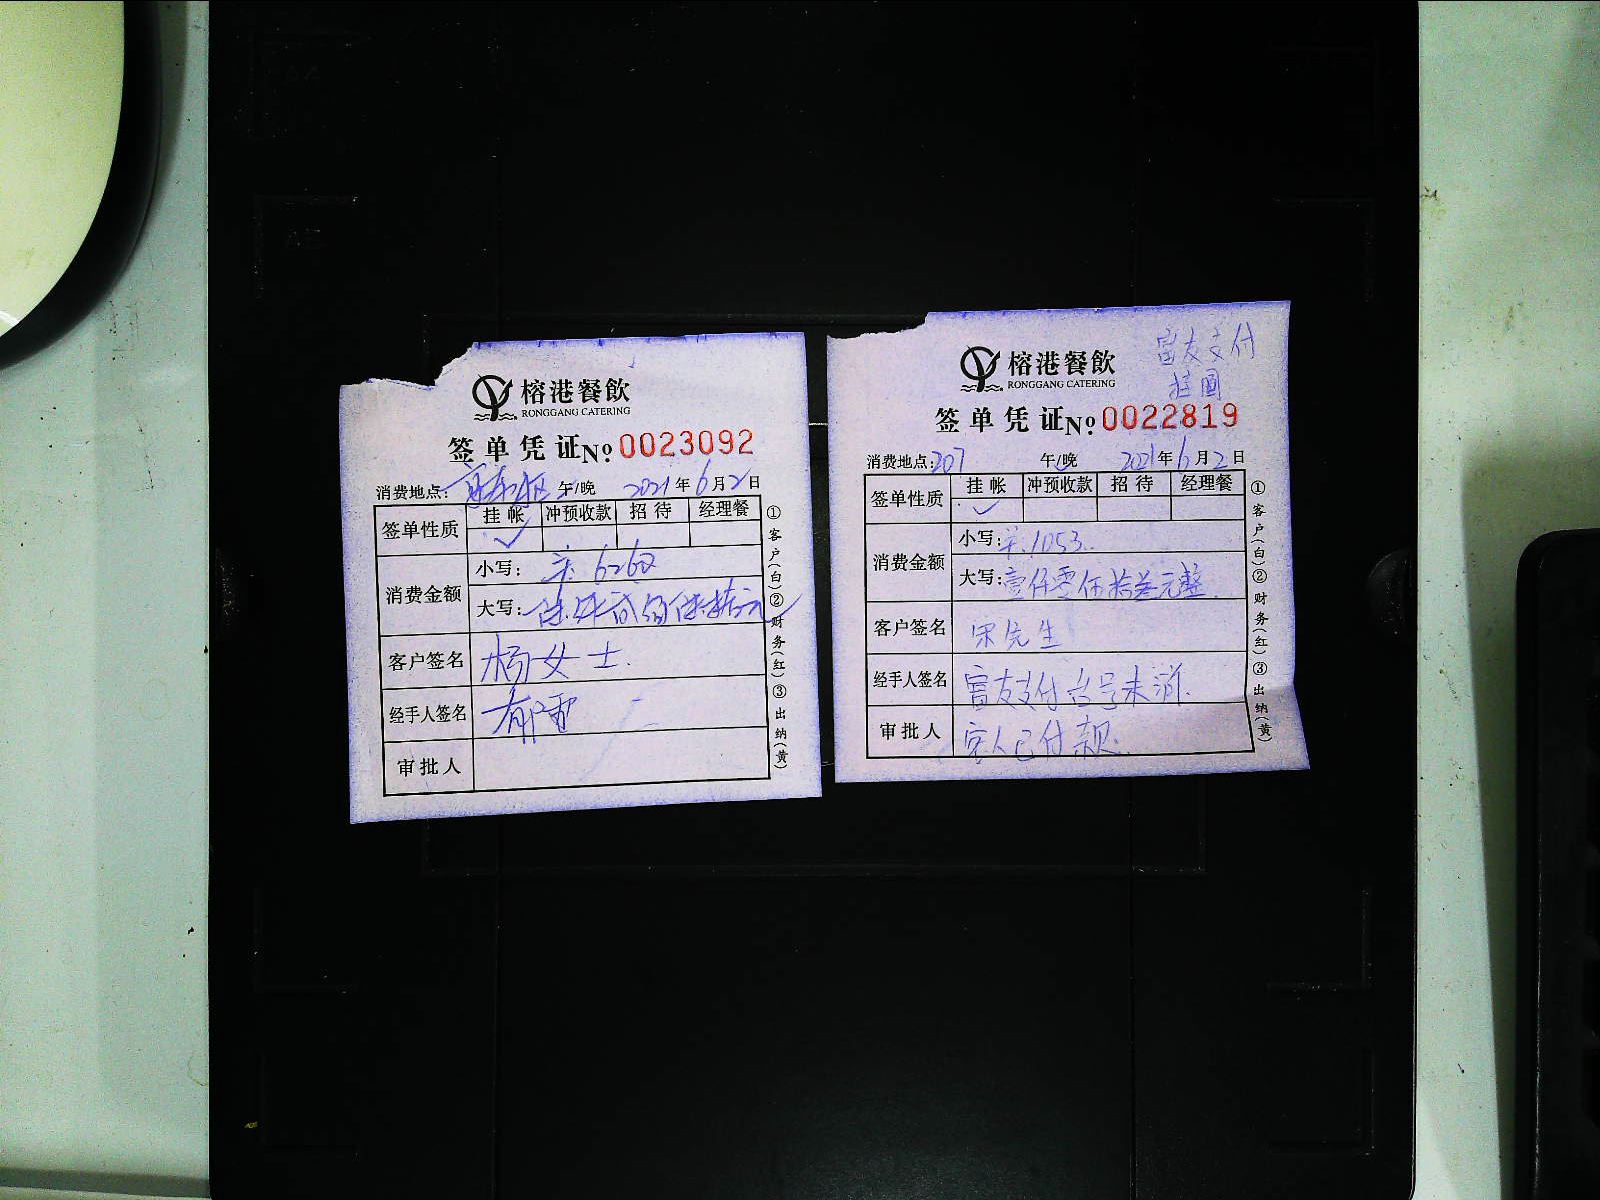 榕港餐飲
RONGGANG CATERING
签单凭证No 0023092
消费地点: 午/晚 2021年6月2日
签单性质 挂帐 冲预收款 招待 经理餐
✓
消费金额 小写: 6260
大写: 陆仟贰佰陆拾元
客户签名 杨女士
经手人签名 郁雷
审批人
①客户(白)②财务(红)③出纳(黄)
富友支付
挂
榕港餐飲
RONGGANG CATERING
签单凭证No 0022819
消费地点:207 午/晚 2021年6月2日
签单性质 挂帐 冲预收款 招待 经理餐
✓
消费金额 小写: 1053.
大写: 壹仟零伍拾叁元整
客户签名 宋先生
经手人签名 富友支付 号未消
审批人 客人已付款.
①客户(白)②财务(红)③出纳(黄)